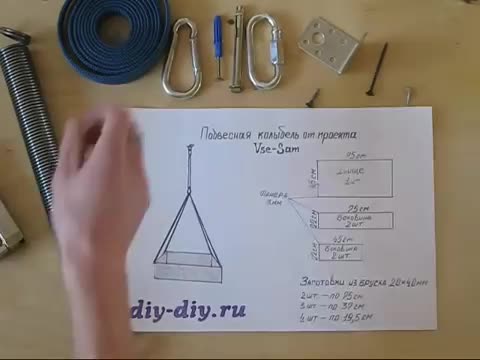 Подвесная колыбель от проекта
Vse-Sam
75см
45см
Днище
1шт
Фанера
75см
22см
Боковина
2шт.
45см
22см
Боковина
2шт.
Заготовки из бруска 20×40мм
2шт. — по 75см
3шт — по 37см
4шт — по 19,5см
diy-diy.ru